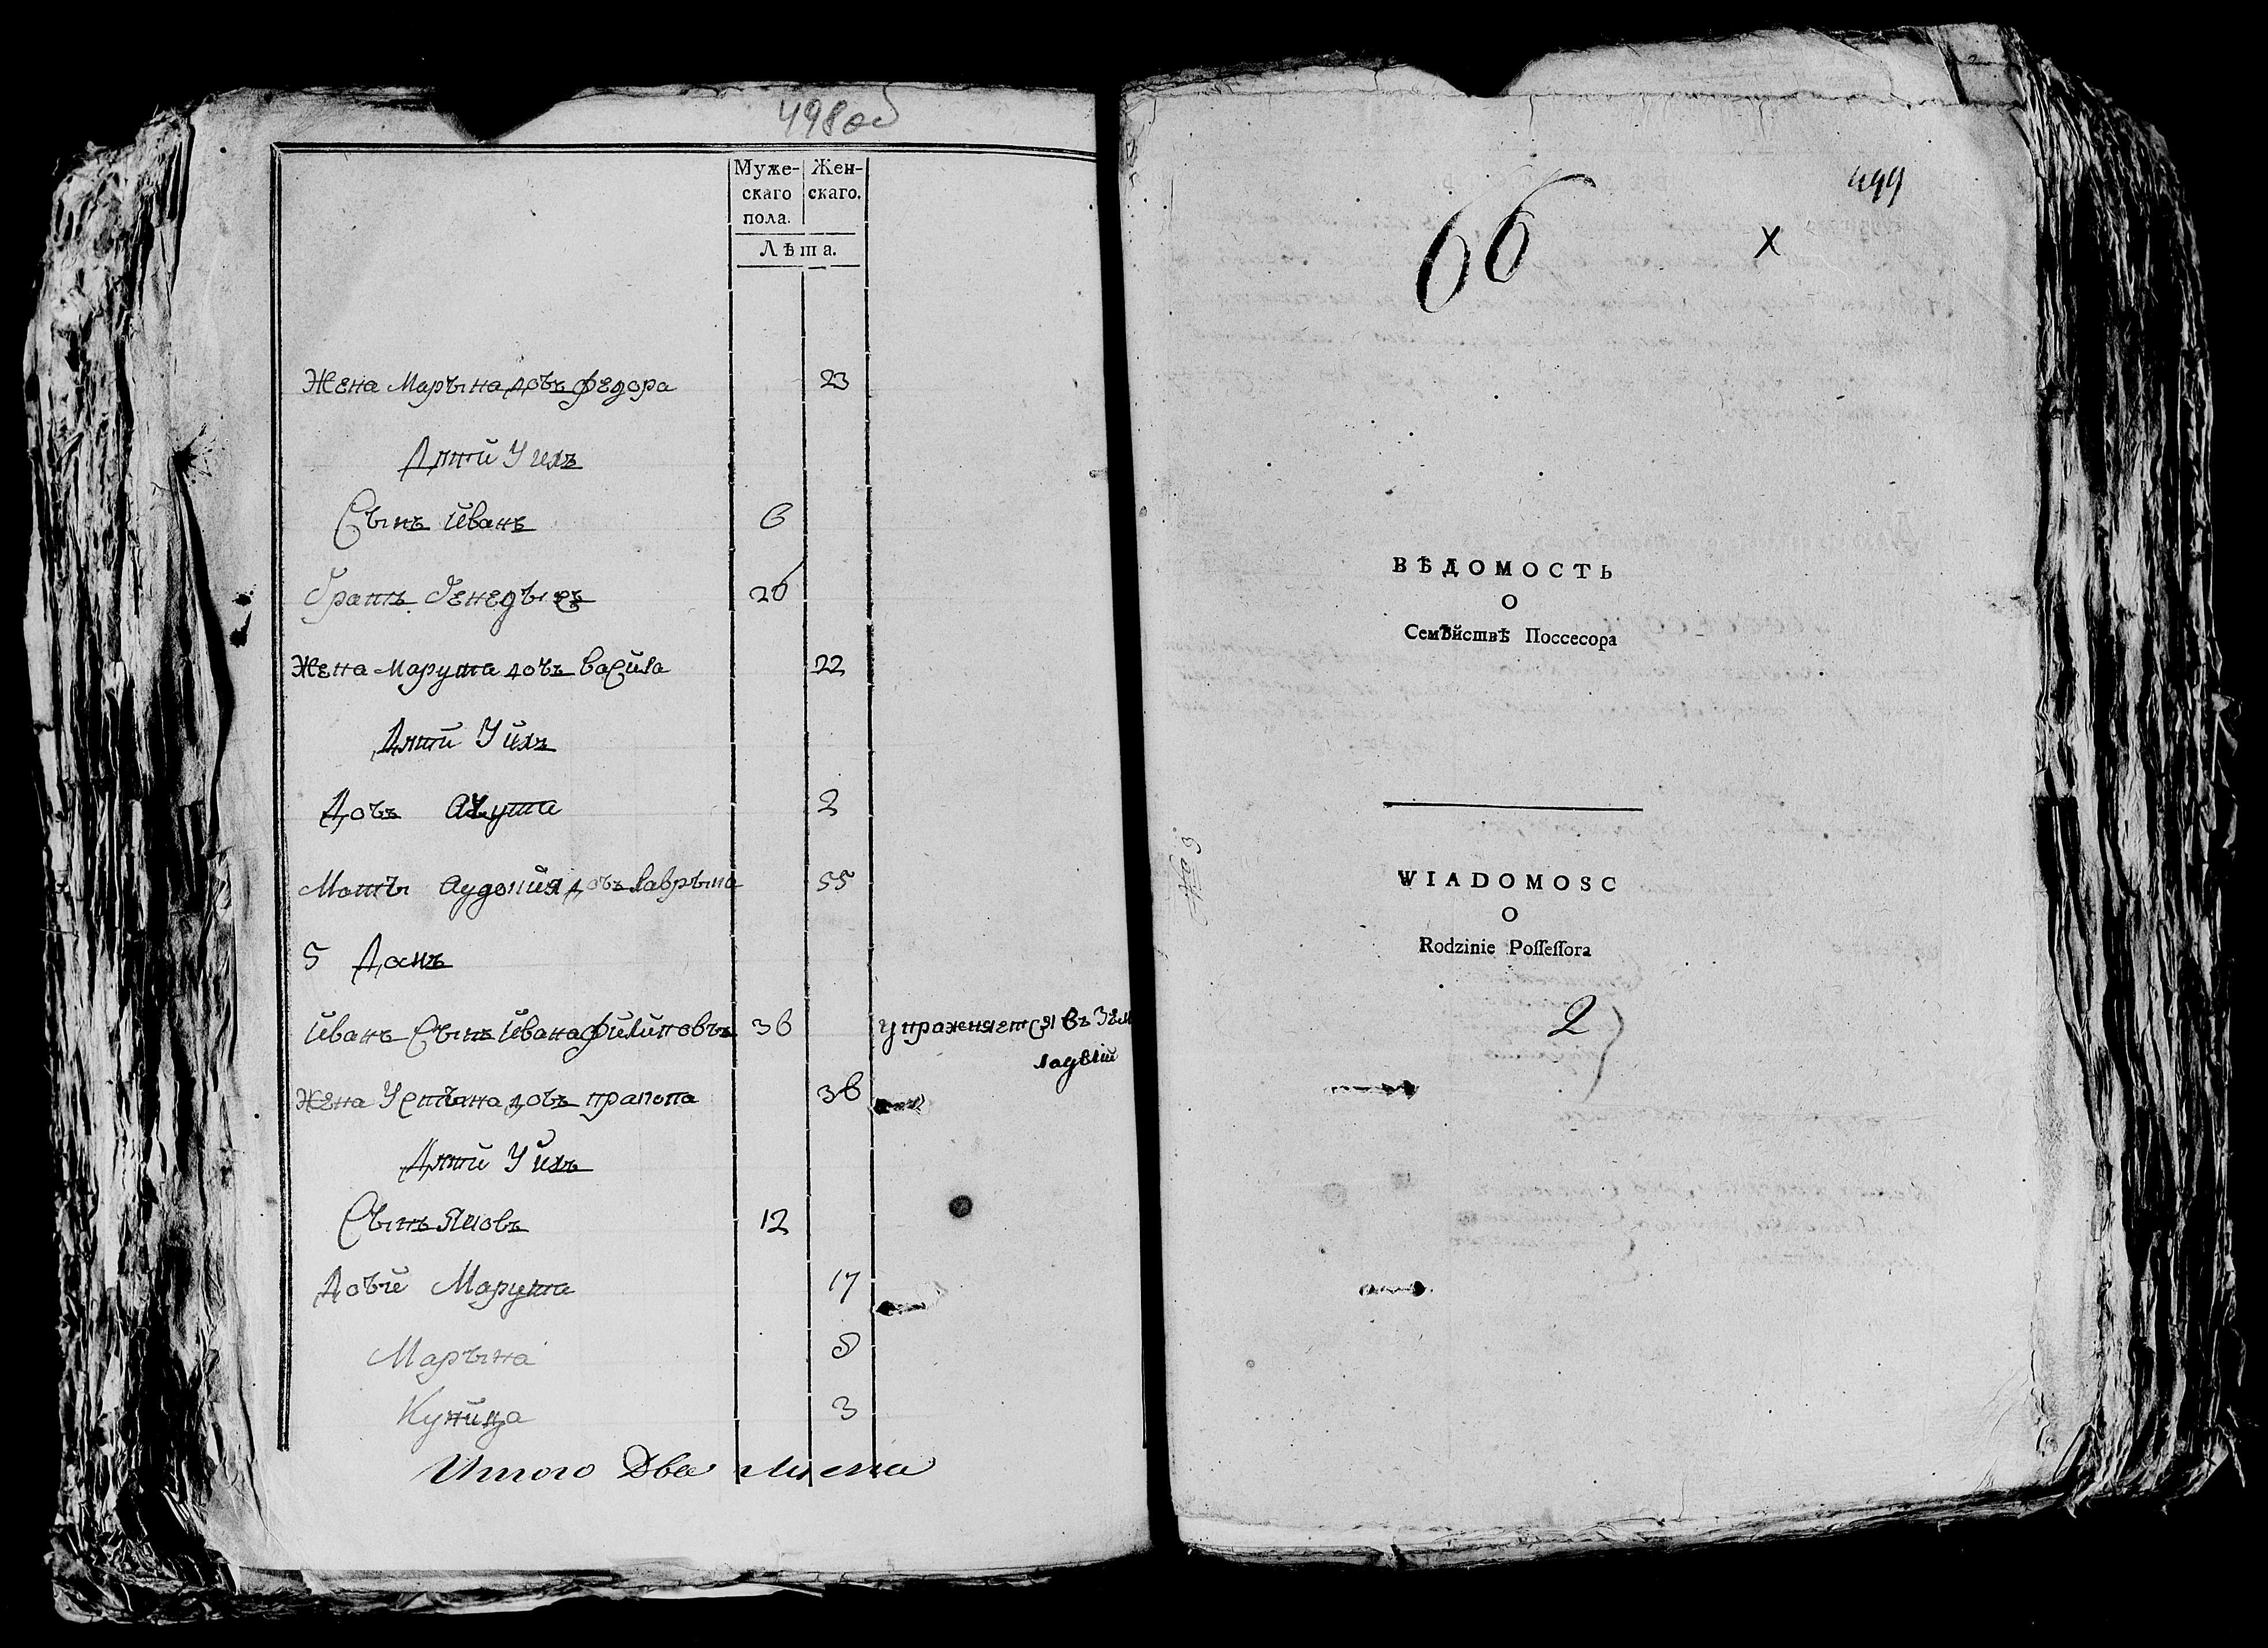 498об
Муже- Жен-
скаго скаго.
пола.
Лѣта.
Жена Марына дочъ федора 23
Дѣти У ихъ
Сынъ Иванъ 6
братъ бенедыкъ 26
Жена Марута дочъ васила 22
Дѣти У ихъ
Дочъ 2
Маты Аудотия дочъ лаврына 55
5 Домъ
Иванъ Сынъ Ивана филиповъ 36 упражняется въ Зем
ладѣлии
Жена Устына дочъ 36
Дѣти У ихъ
Сынъ Яковъ 12
Дочи Марута 17
Марына 8
Куница 3
Итого Два
499
66 x
ВѢДОМОСТЬ
О
Семѣйствѣ Поссесора
WIADOMOSC
O
Rodzinie Poſſeſſora
2